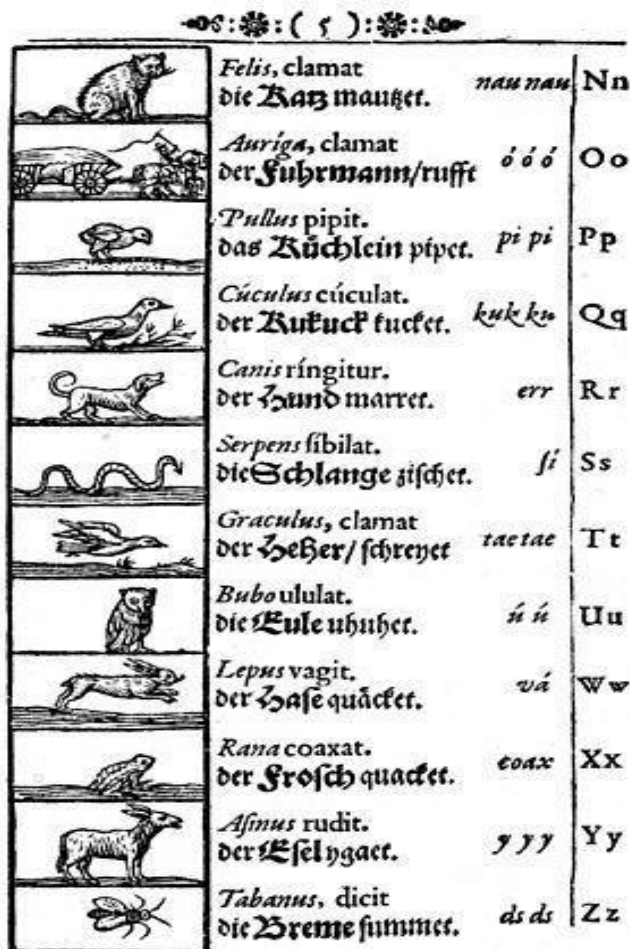 ( 5 )
Felis, clamat
die Katz mautzet. nau nau Nn
Auríga, clamat
der Fuhrmann/rufft ó ó ó Oo
Pullus pipit.
das Küchlein pipet. pi pi Pp
Cúculus cúculat.
der Kukuck kucket. kuk ku Qq
Canis ríngitur.
der Hund marret. err Rr
Serpens sibilat.
die Schlange zischet. si Ss
Graculus, clamat
der Heher/ schreyet tae tae Tt
Bubo ululat.
die Eule uhuhet. ú ú Uu
Lepus vagit.
der Hase quäcket. vá Ww
Rana coaxat.
der Frosch quacket. coax Xx
Asinus rudit.
der Esel ygaet. y y y Yy
Tabanus, dicit
die Breme summet. ds ds Zz